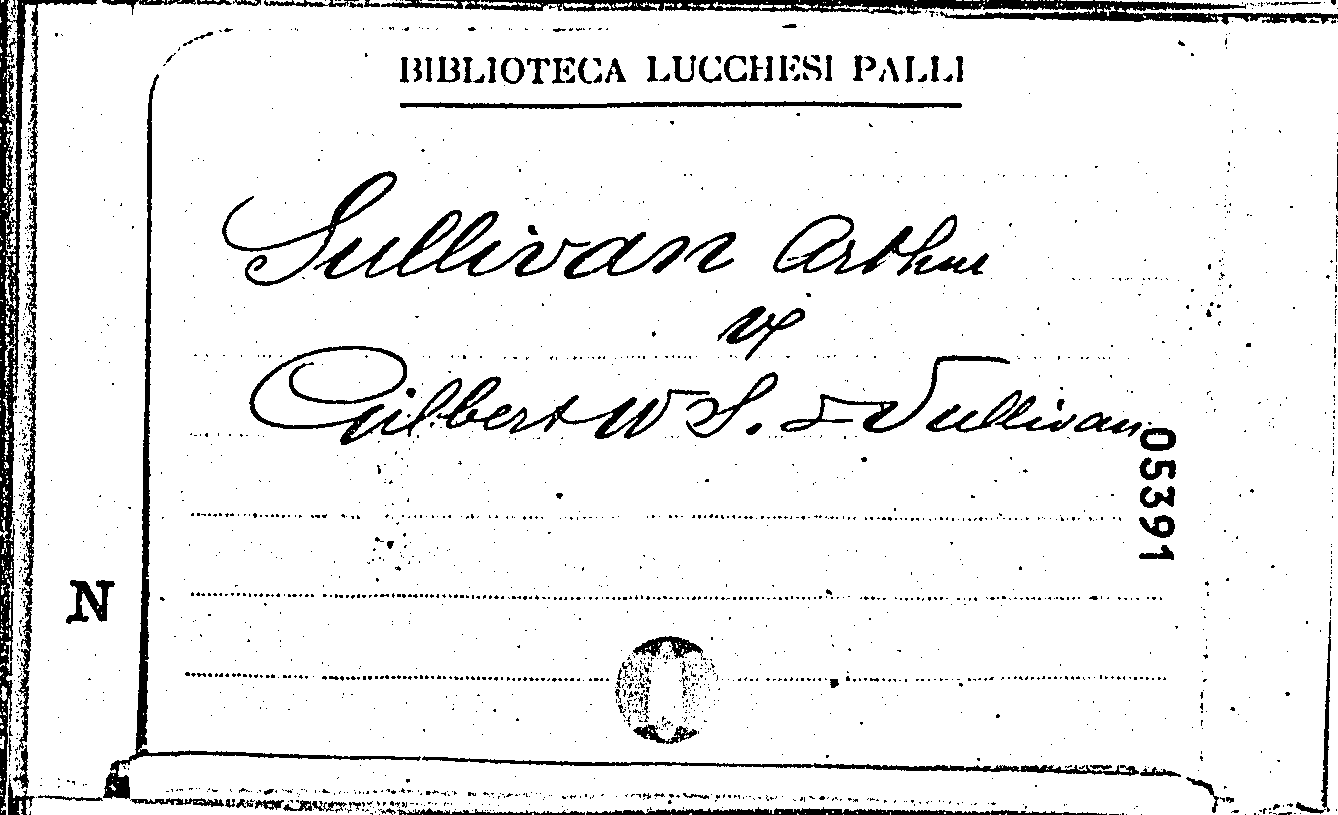 BIBLIOTECA LUCCHESI PALLI
Sullivan Arthur
Gilbert W S. & Sullivan
05391
N